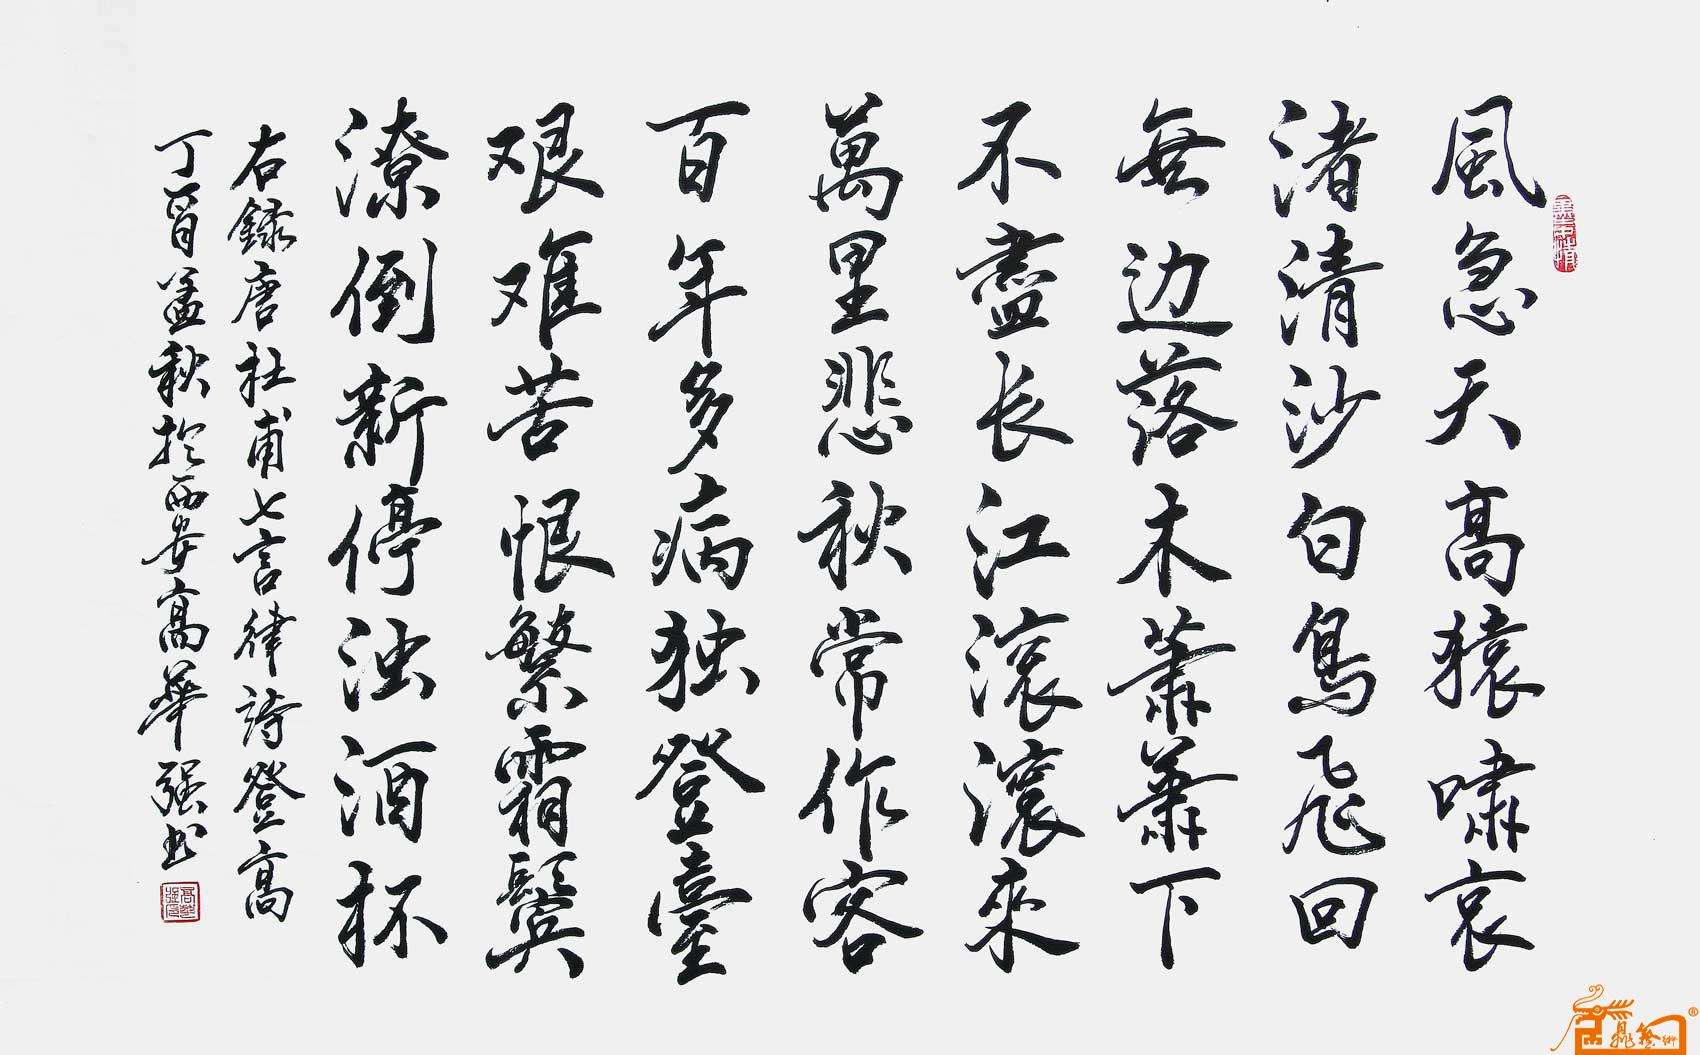 風急天高猿嘯哀
渚清沙白鳥飛回
無边落木蕭蕭下
不盡长江滚滚來
萬里悲秋常作客
百年多病独登臺
艰难苦恨繁霜鬓
潦倒新停浊酒杯
右録唐杜甫七言律詩登高
丁酉孟秋於西安高華强书